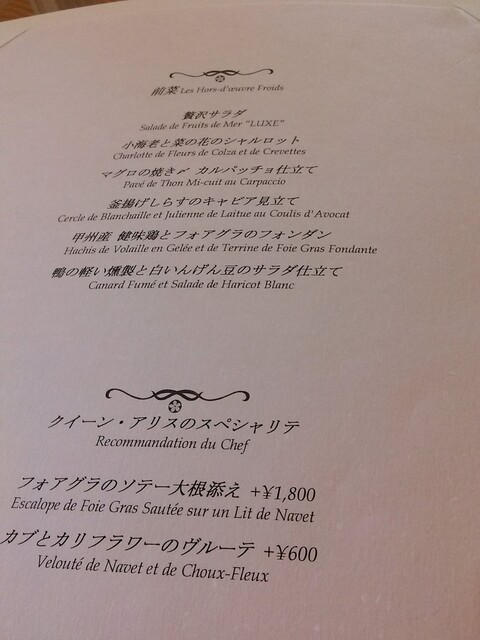 前菜 Les Hors-d'œuvre Froids
贅沢サラダ
Salade de Fruits de Mer "LUXE"
小海老と菜の花のシャルロット
Charlotte de Fleurs de Colza et de Crevettes
マグロの焼き〆 カルパッチョ仕立て
Pavé de Thon Mi-cuit au Carpaccio
釜揚げしらすのキャビア見立て
Cercle de Blanchaille et Julienne de Laitue au Coulis d'Avocat
甲州産 健味鶏とフォアグラのフォンダン
Hachis de Volaille en Gelée et de Terrine de Foie Gras Fondante
鴨の軽い燻製と白いんげん豆のサラダ仕立て
Canard Fumé et Salade de Haricot Blanc
クイーン・アリスのスペシャリテ
Recommandation du Chef
フォアグラのソテー大根添え +¥1,800
Escalope de Foie Gras Sautée sur un Lit de Navet
カブとカリフラワーのヴルーテ +¥600
Velouté de Navet et de Choux-Fleux